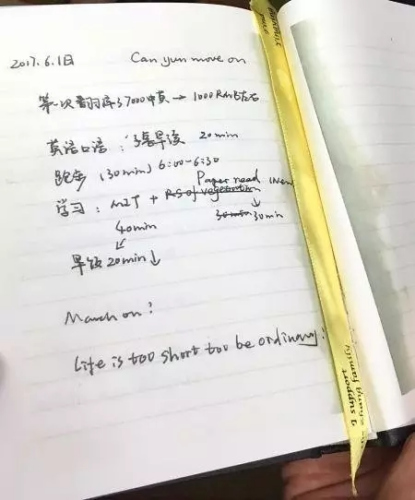 2017.6.1日 Can yun move on
第一次翻译 7000中 → 1000RMB左右
英语口语: 早读 20min
跑步 (30min) 6:00-6:30
Paper read
学习: + RS of vegetation
40min 30min 30min
早饭 20min ↓
March on!
Life is too short too be ordinary!